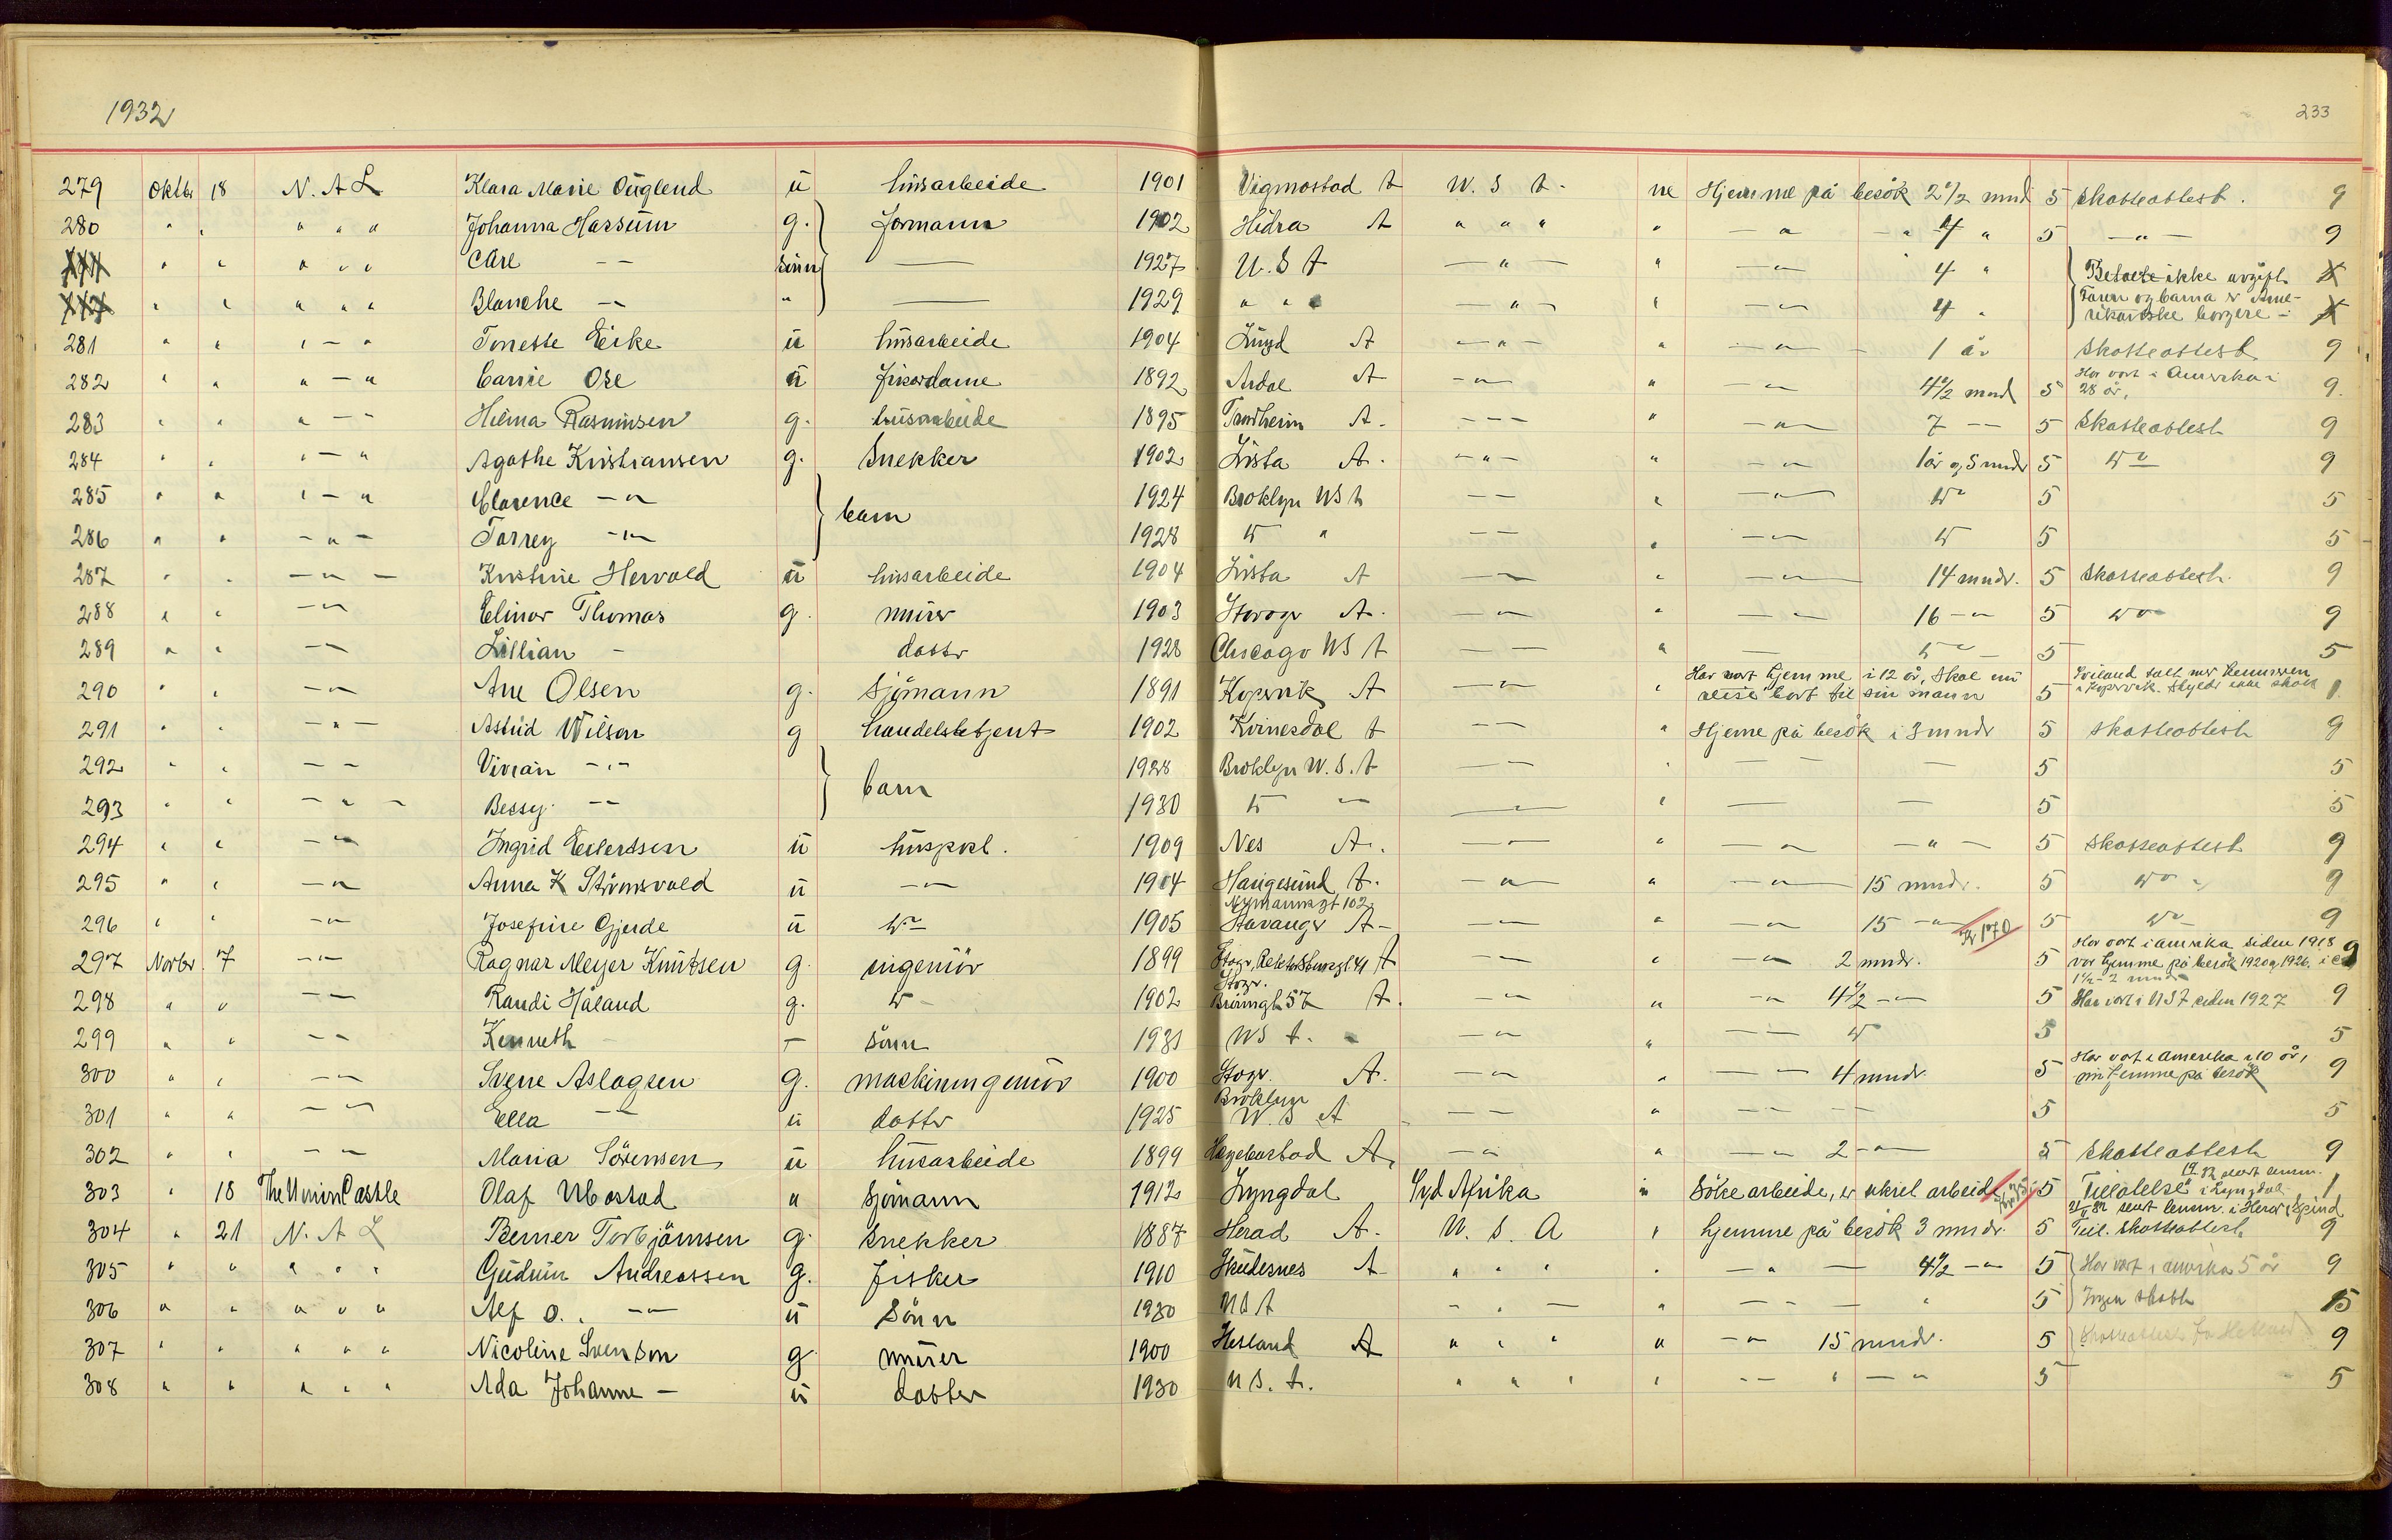 1932
233
279 Oktbr 18 N. A L Klara Marie Öuglend ü hüsarbeide 1901 Vigmostad A U. S A. ne Hjemme på besök 2 1/2 mnd 5 Skatteattest. 9
280 " " " " " Johanna Hassüm g. formann 1902 Hidra A " " " " — " — " 4 " 5 — " — 9
" " " " " Carl — — sönn — 1927 U. S A — " — " — " — 4 " Betaete ikke avgift X
" " " " " Blanche — " — 1929 " " " — " — " — " — 4 " Faren og barna er Ame-
rikanske borgere — X
281 " " " — " Tonette Eike ü hüsarbeide 1904 A — " — " — " — 1 år Skatteattest 9
282 " " " — " Carrie Ore ü frisördame 1892 Årdal A — " — " — " — 4 1/2 mnd 5 Har vart i Amerika i
28 år, 9.
283 " " " — — Helma Rasmüsen g. hüsarbeide 1895 Trondheim A. — — — " — " — 7 — — 5 Skatteattest 9
284 " " " — " Agathe Kristiansen g. Snekker 1902 Lista A. — " — " — " — 1 år og 5 mndr 5 do 9
285 " " " — " Clarence — " — barn 1924 Broklyn US A — — " — " — do 5 5
286 " " — " — Torrey — " — 1928 do " — — " — " — do 5 5
287 " " — " — Kristine Hervold ü hüsarbeide 1904 Lista A — " — " — " — 14 mndr. 5 Skatteattest. 9
288 " " — " — Elinor Thomas g. mürer 1903 Stavagr A. — " — " — " — 16 — " 5 do 9
289 " " — " — Lillian — datter 1928 Chicago US A — — " — do — 5 5
290 " " — " — Ane Olsen g. Sjömann 1891 Kopervik A — " — " Har vart hjemme i 12 år, Skal nü
reise bort til sin mann 5 i Kopervik. Skylder ikke skatt 1
291 " " — " — Astrid Wilson g handelsbetjent 1902 Kvinesdal A — — " Hjeme på besök i 3 mndr 5 Skatteattest 9
292 " " — — Vivian — " — barn 1928 Broklyn U. S. A — — " — — — 5 5
293 " " — " — Bessy — — 1930 do — — " — — 5 5
294 " " — " — Ingrid Eilertssen ü hüspost. 1909 Nes A. — — " — " — — " — 5 Skatteattest 9
295 " " — " — Anna K Strömsvold ü — " — 1904 Haügesünd A. — " — " — " — 15 mndr. 5 do " 9
296 " " — " — Josefine Gjerde ü do 1905 Nymannsgt 102
Stavangr A — — — " — " — 15 — " — 5 do 9
297 Novbr. 7 — " — Ragnar Meyer Knütsen g. ingeniör 1899 Stavgr, A — — " — " — 2 mndr. 5 Har vart i amerika siden 1918
var hjemme på besök 1920 og 1926. i ca
1 1/2 - 2 mndr 9
298 " " — — Randi Håland g. do — 1902 Stavgr. 57 A. — " — " — " 4 1/2 — " — 5 Har vart i USA siden 1927 9
299 " " — — Kenneth — sönn 1931 US A. " — " — " — — do 5 5
300 " " — " — Sverre Aslagsen g. maskiningeniör 1900 Stavgr. A. — " — " — — 4 mndr 5 Har vart i Amerika i 10 år,
nü hjemme på besök 9
301 " " — " — Ella — " — ü datter 1925 Broklyn
U. S A — — " — — — 5 5
302 " " — — Maria Sörensen ü hüsarbeide 1899 Hægebostad A. — " — " — " 2 — " — 5 Skatteattest 9
303 " 18 The Union Castle Olaf Ubostad u Sjömann 1912 Lyngdal Syd Afrika " Söke arbeide, er sikret arbeide 5 Tillatelse i Lyngdal 1
304 " 21 N. A L Berner Torbjörnsen g. Snekker 1887 Herad A. U. S. A " hjemme på besök 3 mndr. 5 Till. Skatteattest. 9
305 " " " " " Güdrün Andreassen g. fisker 1910 Sküdesnes A " " " " — " — 4 1/2 — " 5 Har vart i amerika 5 år 9
306 " " " " " Alf O. — " — ü Sönn 1930 USA — " — " — — — " 5 Ingen skatt 5
307 " " " " " Nicoline Svendsen g mürer 1900 Hetland A " " " " — " 15 mndr. 5 Skatteattest fra Hetland 9
308 " " " " " Ada Johanne — ü datter 1930 U S. A. " " " " — — " — " 5 5